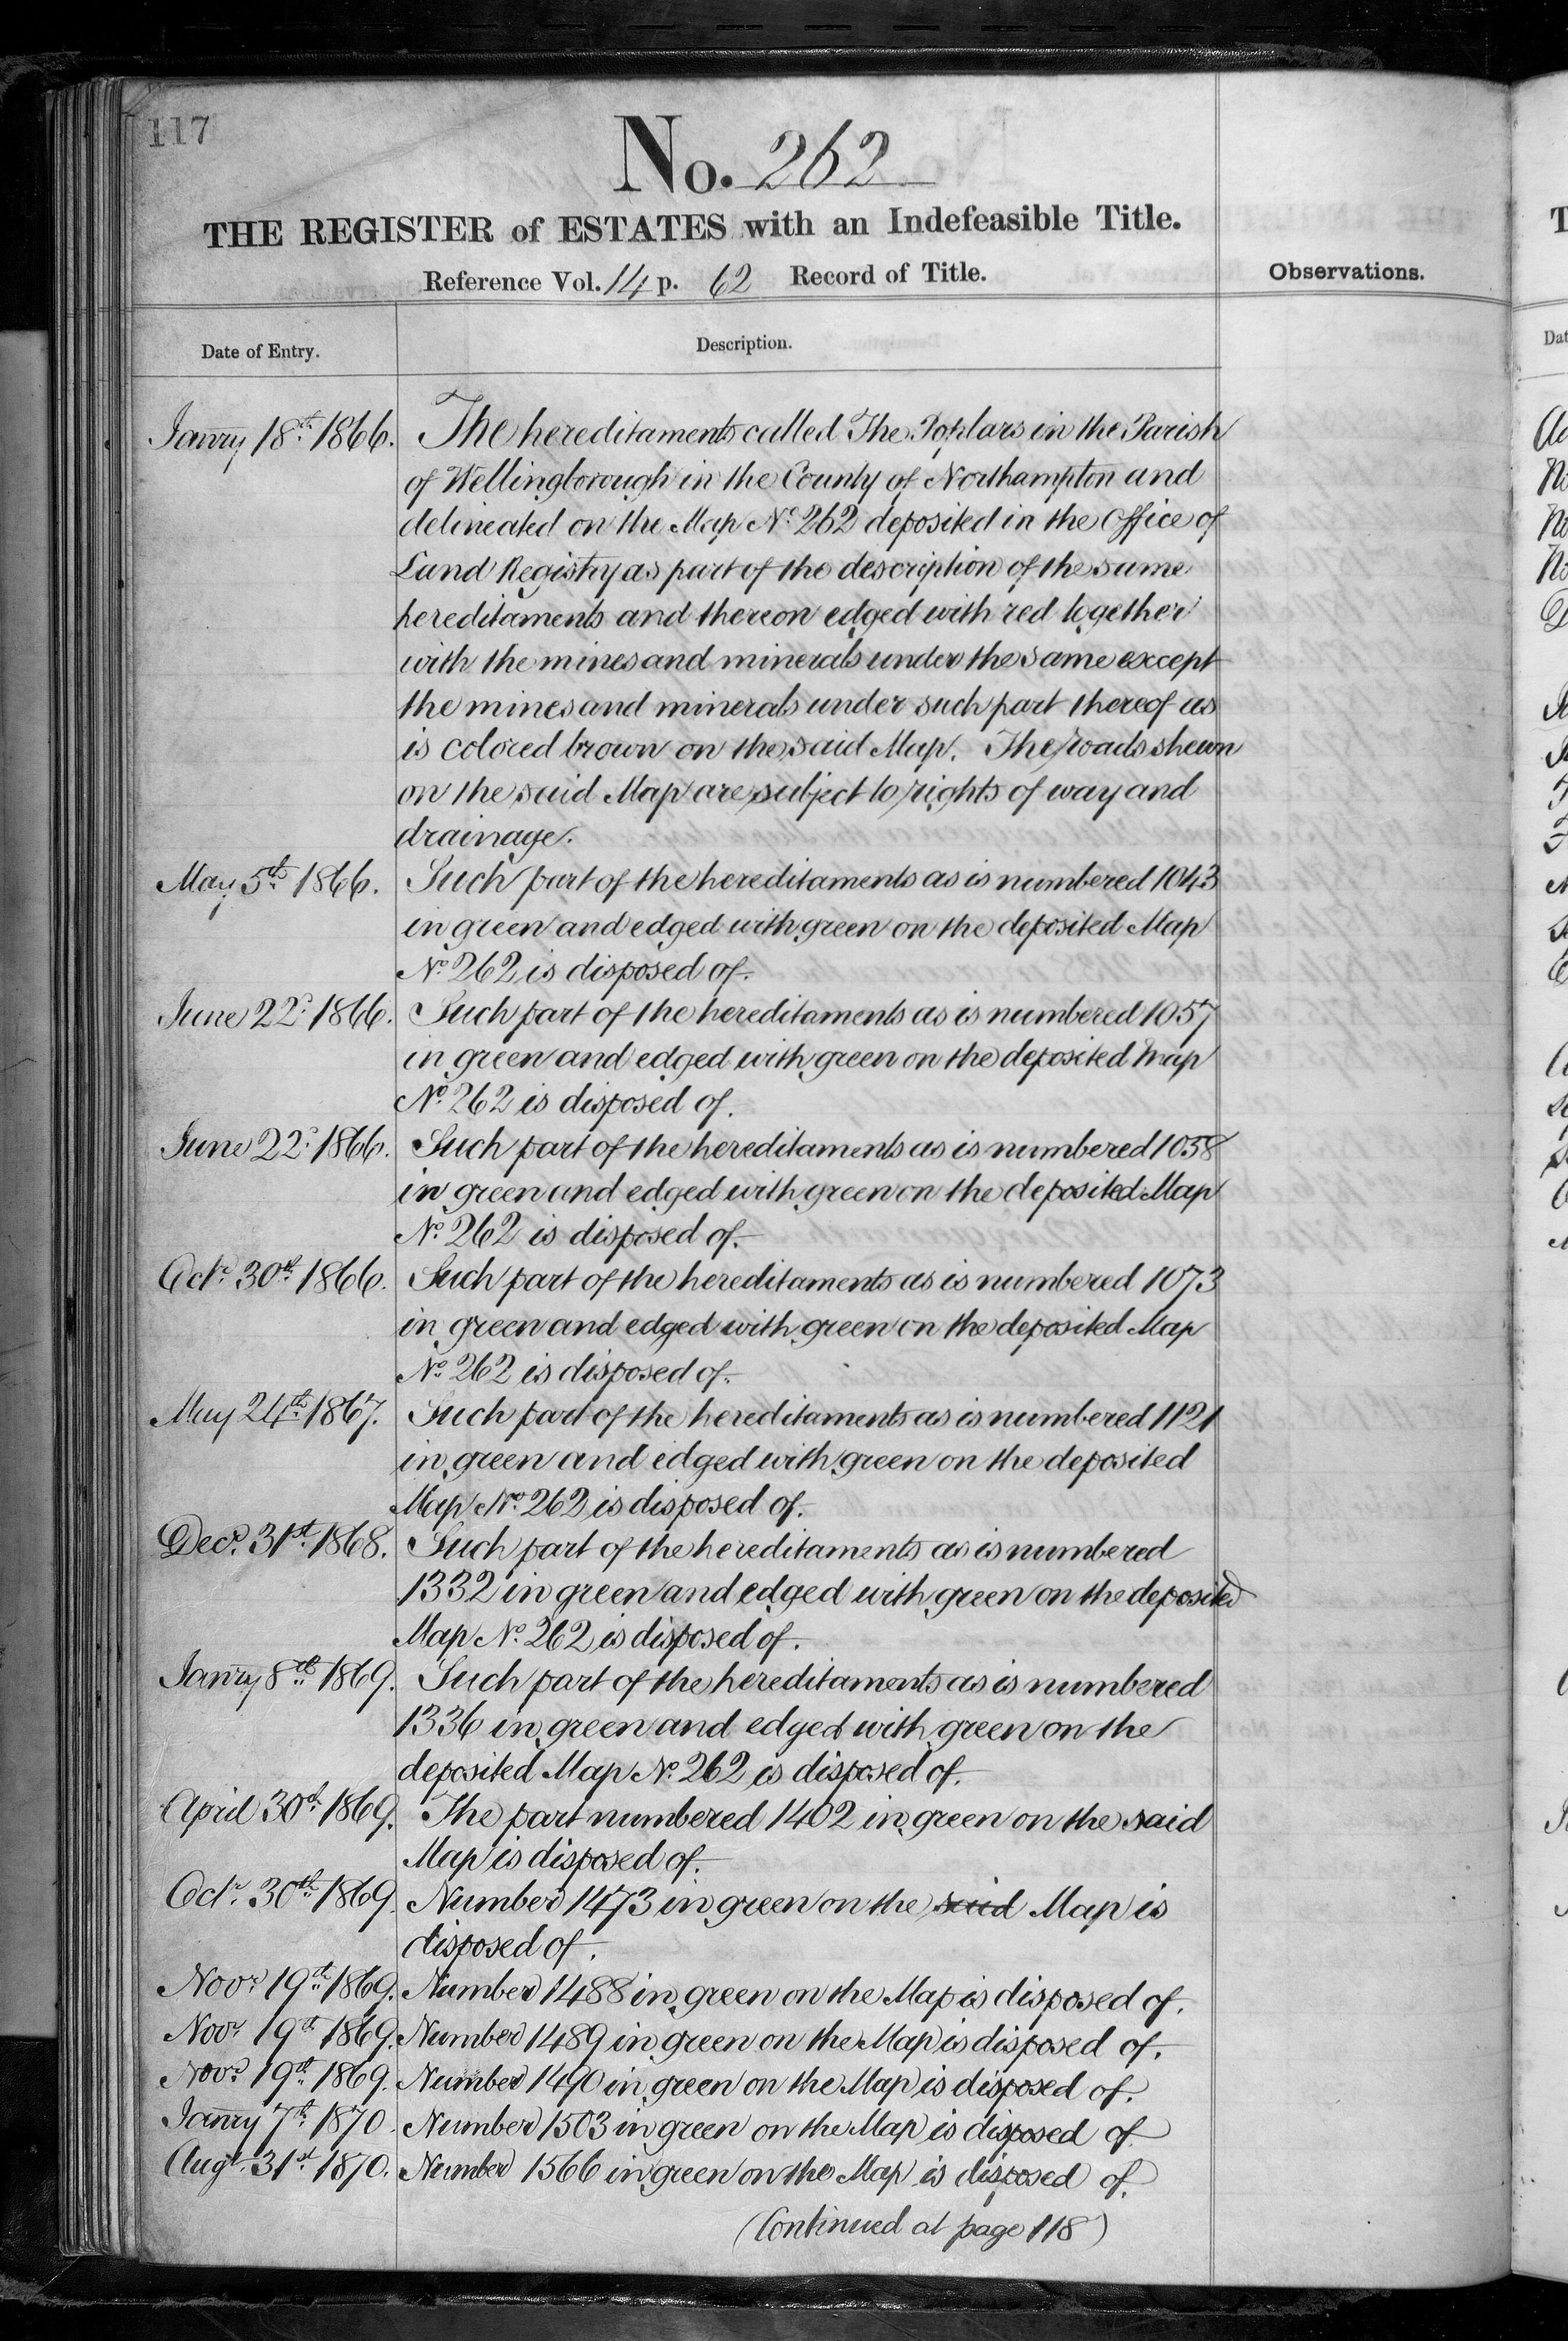 117
No. 262
THE REGISTER of ESTATES with an Indefeasible Title.
Reference Vol. 14 p. 62 Record of Title.
Observations.
Date of Entry.
Description.
Janry 18th 1866. The hereditaments called The Poplars in the Parish
of Wellingborough in the County of Northampton and
delineated on the Map No. 262 deposited in the Office of
Land Registry as part of the description of the same
hereditaments and thereon edged with red together
with the mines and minerals under the same except
the mines and minerals under such part thereof as
is colored brown on the said Map. The roads shewn
on the said Map are subject to rights of way and
drainage.
May 5th 1866. Such part of the hereditaments as is numbered 1043
in green and edged with green on the deposited Map
No. 262 is disposed of.
June 22d 1866. Such part of the hereditaments as is numbered 1057
in green and edged with green on the deposited Map
No. 262 is disposed of.
June 22d 1866. Such part of the hereditaments as is numbered 1058
in green and edged with green on the deposited Map
No. 262 is disposed of.
Octr. 30th 1866. Such part of the hereditaments as is numbered 1073
in green and edged with green on the deposited Map
No. 262 is disposed of.
May 24th 1867. Such part of the hereditaments as is numbered 1121
in green and edged with green on the deposited
Map No. 262 is disposed of.
Decr. 31st 1868. Such part of the hereditaments as is numbered
1332 in green and edged with green on the deposited
Map No. 262 is disposed of.
Janry 8th 1869. Such part of the hereditaments as is numbered
1336 in green and edged with green on the
deposited Map No. 262 is disposed of.
April 30th 1869. The part numbered 1402 in green on the said
Map is disposed of.
Octr. 30th 1869. Number 1473 in green on the said Map is
disposed of.
Novr. 19th 1869. Number 1488 in green on the Map is disposed of.
Novr. 19th 1869. Number 1489 in green on the Map is disposed of.
Novr. 19th 1869. Number 1490 in green on the Map is disposed of.
Janry 7th 1870. Number 1503 in green on the Map is disposed of
Augt. 31st 1870. Number 1566 in green on the Map is disposed of.
(Continued at page 118)